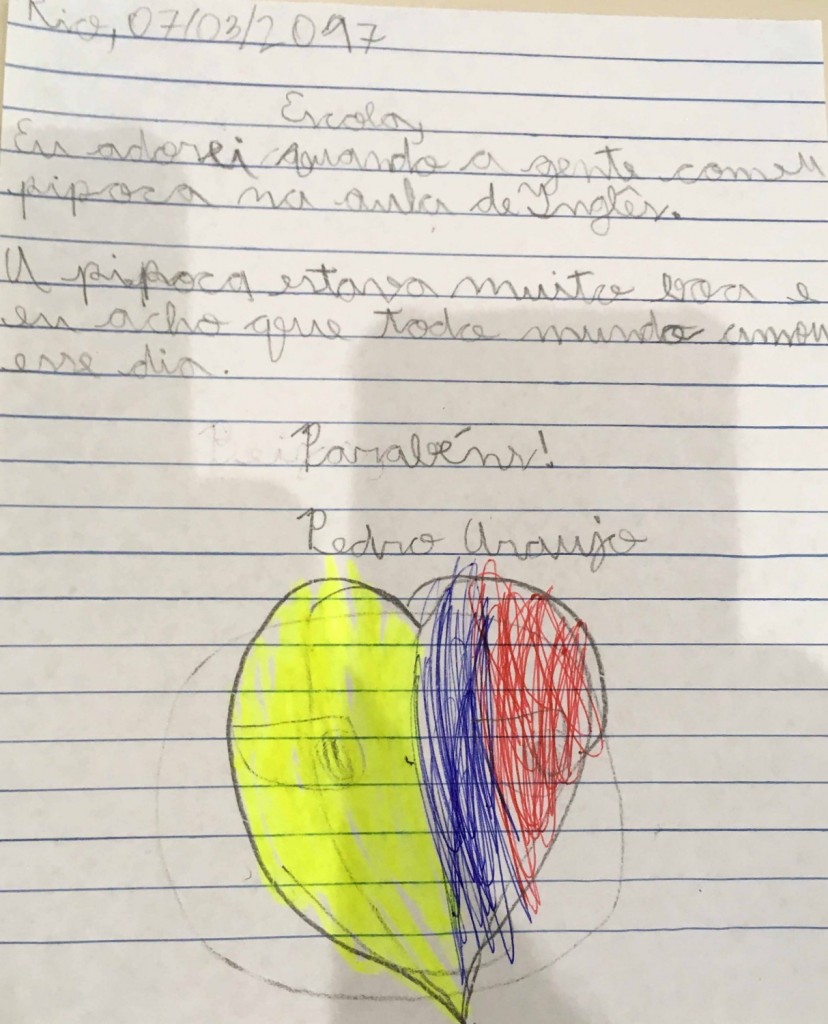 Rio, 07/03/2097
Escola,
Eu adorei quando a gente comeu
pipoca na aula de Inglês.
A pipoca estava muito boa e
eu acho que todo mundo amou
esse dia.
Parabéns!
Pedro Araujo